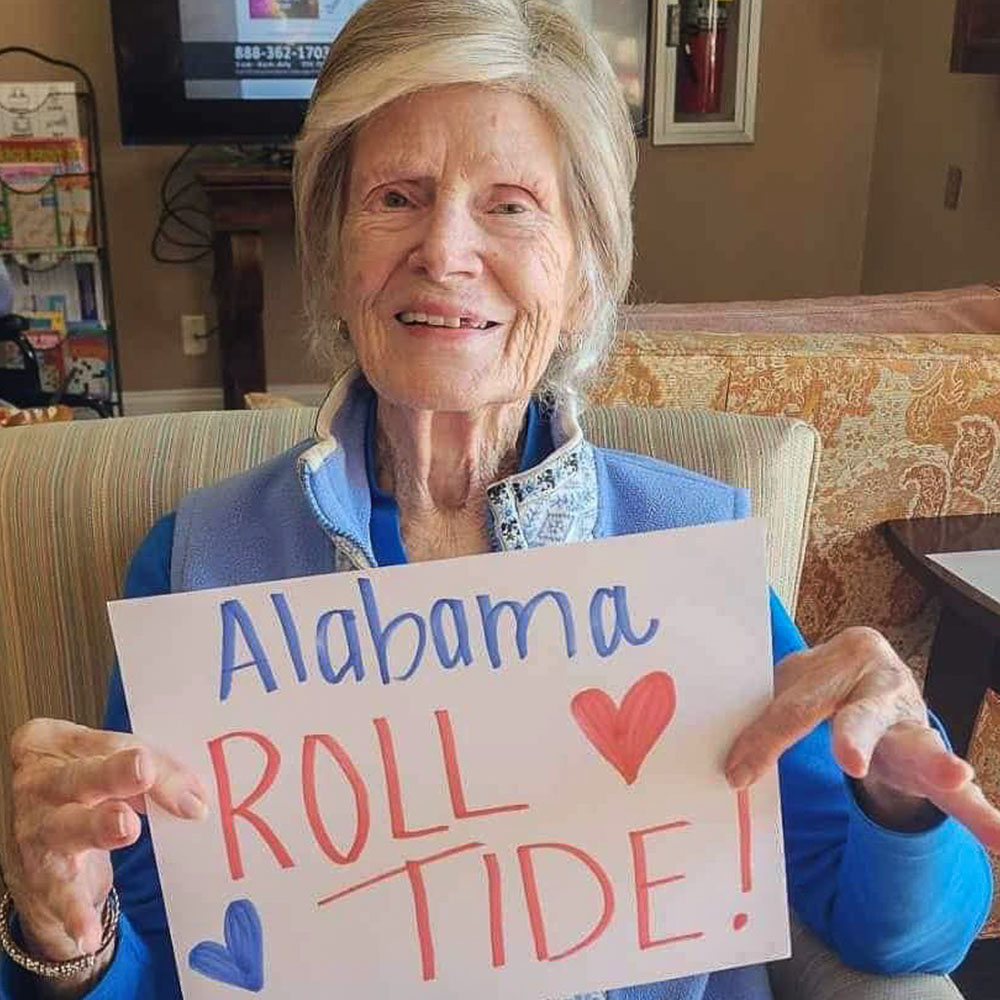 888-362-170
Alabama
ROLL
TIDE!